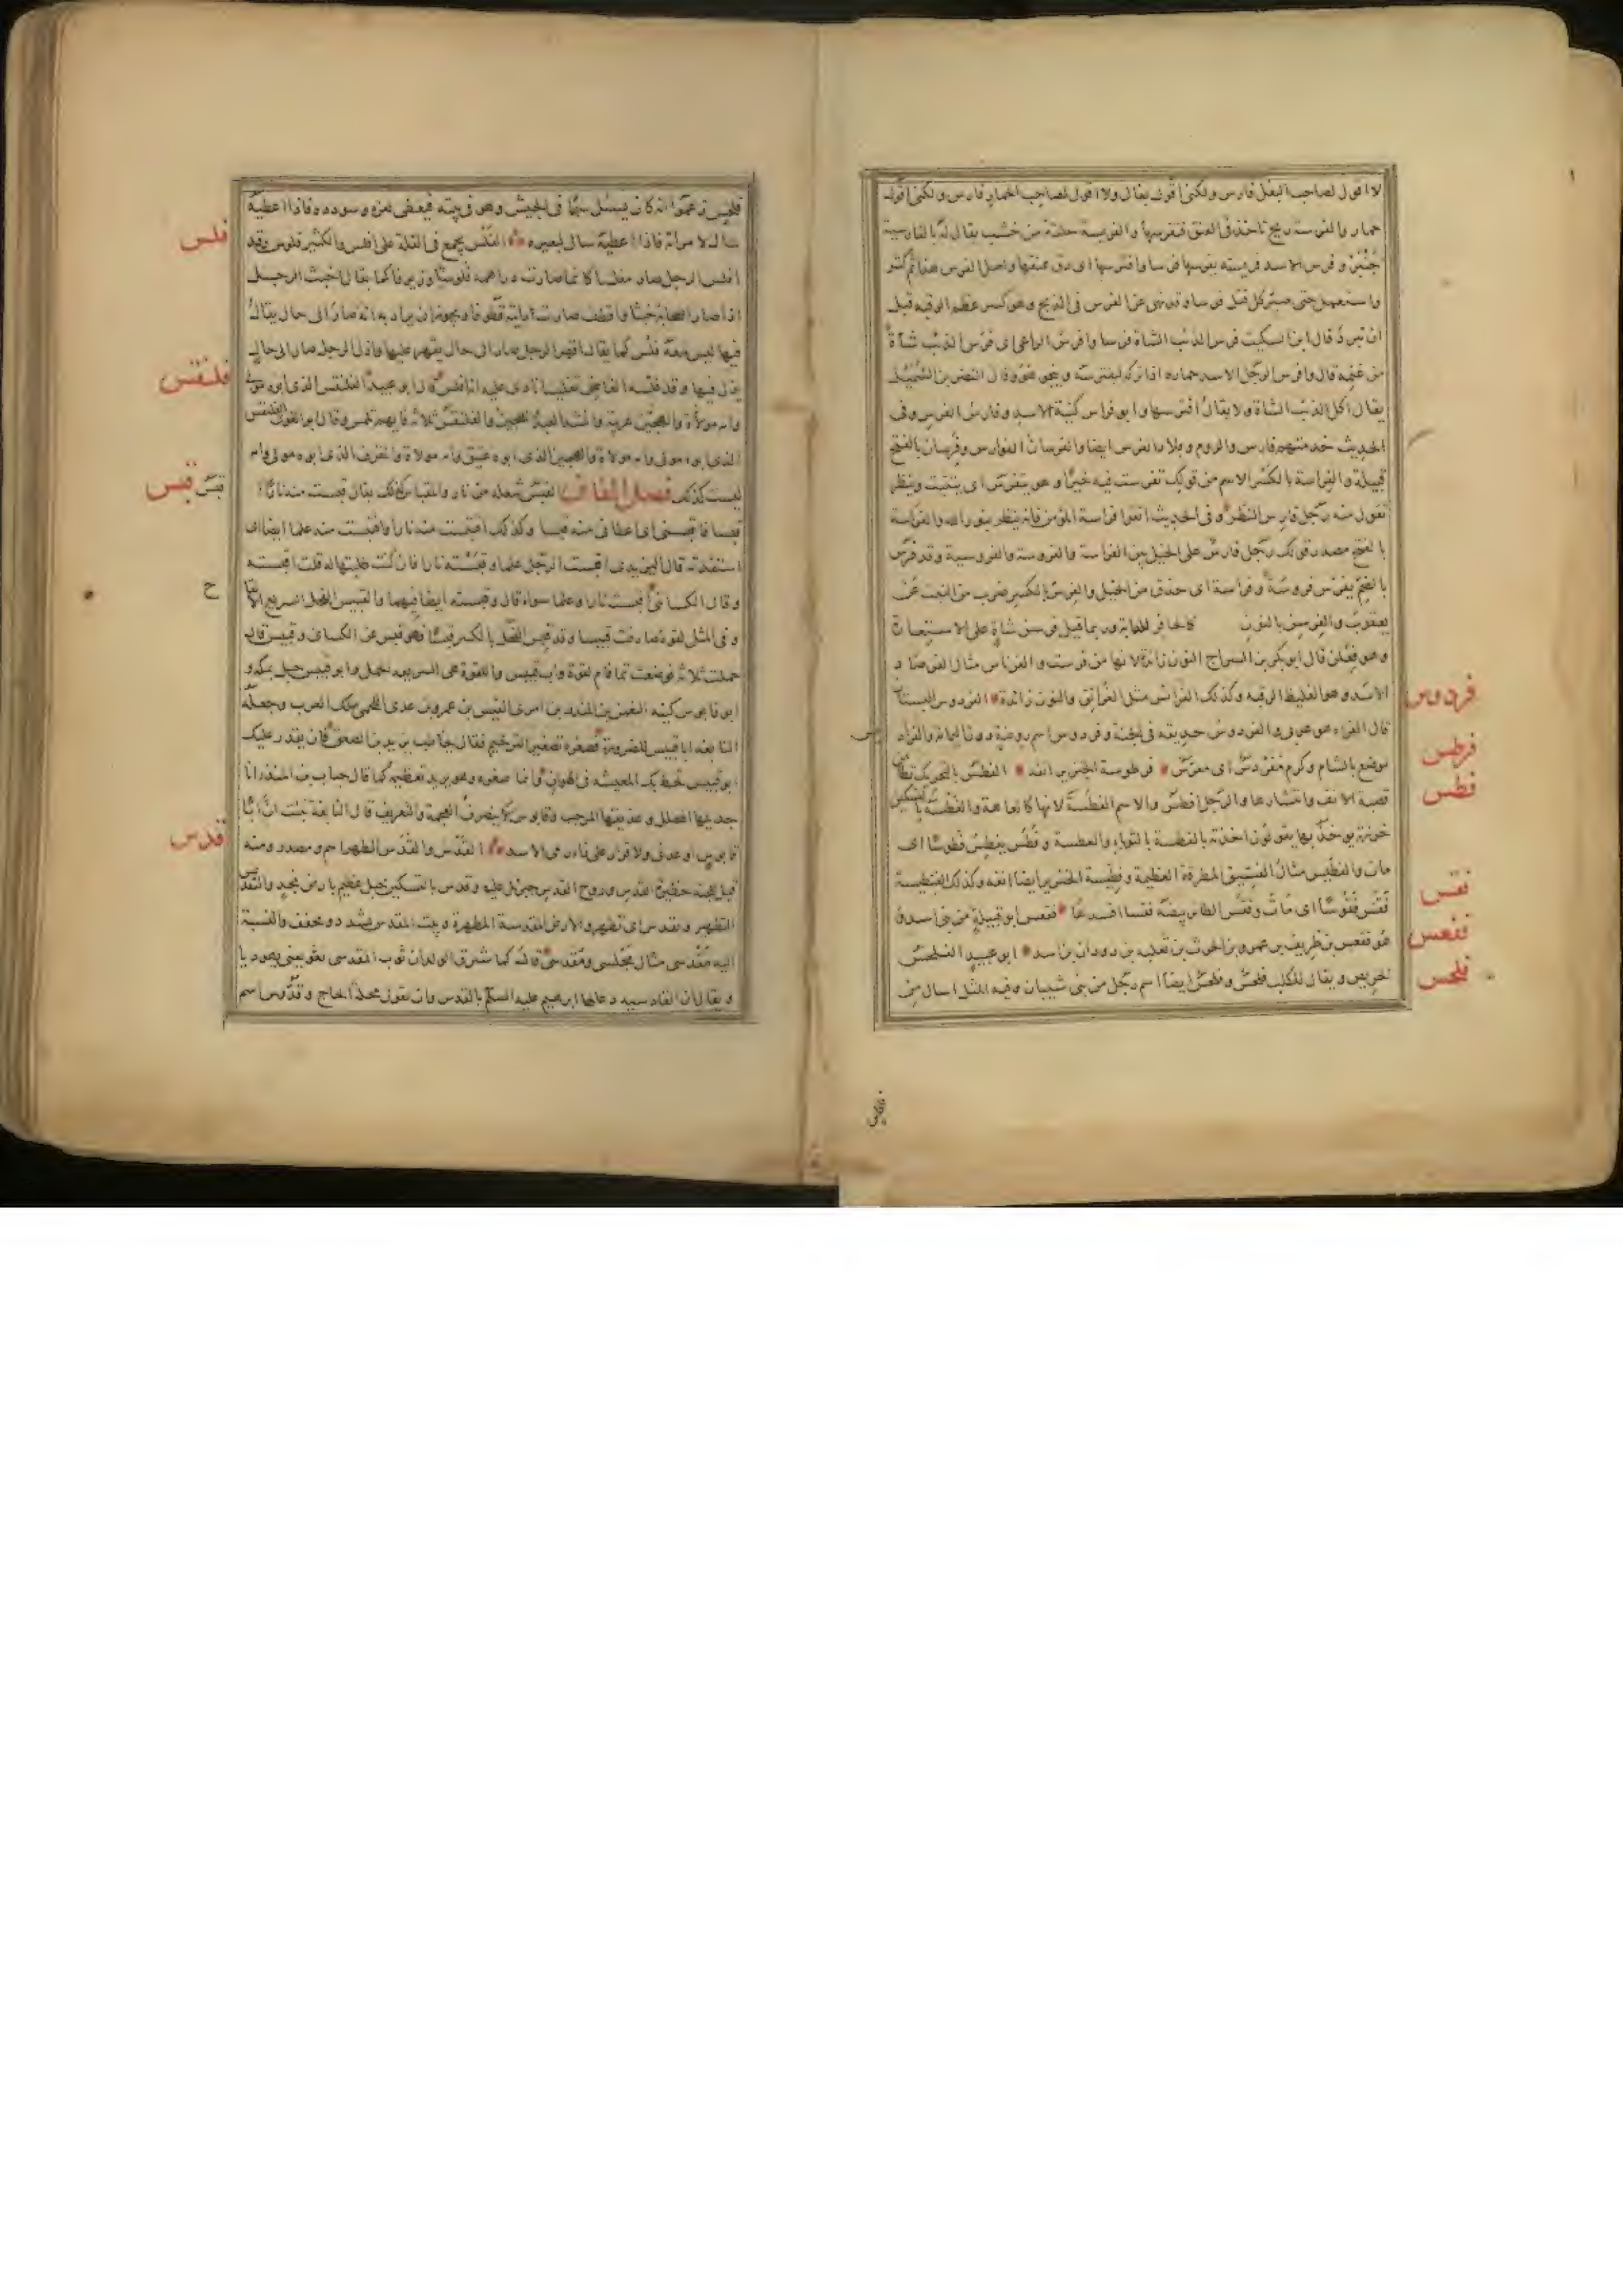 لا اقول لصاحب البغل فارس ولكنى اقول بغال ولا اقول لصاحب الحمار فارس ولكنى اقول
حمار والفرسة ريح تاخذ فى العنق فتفرسها والفريسة حلقة من خشب يقال له بالفارسية
چنبر و فرس الاسد فريسته يفرسها فرسا وافترسها اى دق عنقها واصل الفرس هذا ثم كثر
واستعمل حتى صير كل قتل فرسا وقد نهى عن الفرس فى الذبح وهو كسر عظم الرقبة قبل
ان تبرد قال ابن السكيت فرس الذئب الشاة فرسا وافرس الراعى اى فرس الذئب شاة
من غنمه قال وافرس الرجل الاسد حماره اذا تركه ليفترسه وينجو هو وقال النضر بن الشميل
يقال اكل الذئب الشاة ولا يقال افترسها وابو فراس كنية الاسد وفارس الفرس وفى
الحديث خدمتهم فارس والروم وبلاد الفرس ايضا والفرسان الفوارس وفرسان بالفتح
قبيلة والفراسة بالكسر الاسم من قولك تفرست فيه خيرا وهو يتفرس اى يتثبت وينظر
تقول منه رجل فارس النظر وفى الحديث اتقوا فراسة المؤمن فانه ينظر بنور الله والفراسة
بالفتح مصدر قولك رجل فارس على الخيل بين الفراسة والفروسة والفروسية وقد فرس
بالضم يفرس فروسة وفراسة اى حذق من الخيل والفرس بالكسر ضرب من النبت عن
يعقوب والفرسن بالنون كالحافر للدابة وربما قيل فرسن شاة على الاستعارة
وهو فعلن قال ابو بكر بن السراج النون زائدة لانها من فرست والفرناس مثال الفرصاد
الاسد وهو الغليظ الرقبة وكذلك الفرانس مثل الغرانق والنون زائدة الفردوس البستان
فردوس
قال الفراء هو عربى والفردوس حديقة فى الجنة وفردوس اسم روضة دون اليمامة والفراديس
موضع بالشام وكرم مفردس اى معرش فرطوسة الخنزير انفه الفطس بالتحريك تطامن
فرطس
قصبة الانف وانتشارها والرجل افطس والاسم الفطسة لانها كالعاهة والفطسة بالتسكين
فطس
خرزة يؤخذ بها يقولون اخذته بالفطسة بالثوباء والعطسة وفطس يفطس فطوسا اى
مات والفطيس مثال الفسيق المطرقة العظيمة وفطيسة الخنزير ايضا انفه وكذلك الفنطيسة
فقس فقوسا اى مات وفقس الطائر بيضه فقسا افسدها فقعس ابو قبيلة من بنى اسد وهو
فقس
هو فقعس بن طريف بن عمرو بن الحرث بن ثعلبه بن دودان بن اسد ابو عبيد الفلحس
فقعس
الحريص ويقال للكلب فلحس وفلحس ايضا اسم رجل من بنى شيبان وفيه المثل اسال من
فلحس
فلحس زعموا انه كان يسئل سهما فى الجيش وهو فى بيته فيعطى لعزه وسودده فاذا اعطيه
سال لامراته فاذا اعطيه سال لبعيره الفلس يجمع فى القلة على افلس والكثير فلوس وقد
فلس
افلس الرجل صار مفلسا كانما صارت دراهمه فلوسا وزيوفا كما يقال اخبث الرجل
اذا صار اصحابه خبثا واقطف صارت دابته قطوفا ويجوز ان يراد به انه صار الى حال يقال
فيها ليس معه فلس كما يقال اقهر الرجل صار الى حال يقهر عليها واذل الرجل صار الى حال
يذل فيها وقد فلسه القاضى تفليسا نادى عليه انه افلس قال ابو عبيد الفلنقس الذى ابوه مولى
فلنقس
وامه مولاة والهجين عربية وانشد العبد والهجين والفلنقس ثلاثة فايهم تلمس وقال ابو الغوث الفلنقس
الذى ابوه مولى وامه مولاة والهجين الذى ابوه عتيق وامه مولاة والمقرف الذى ابوه مولى وامه
ليست كذلك فصل القاف القبس شعلة من نار والمقباس كذلك يقال قبست منه نارا
قبس قبس
قبسا فاقبسنى اى اعطانى منه قبسا وكذلك اقتبست منه نارا واقتبست منه علما ايضا اى
استفدته قال اليزيدى اقبست الرجل علما وقبسته نارا فان كنت طلبتها له قلت اقبسته
وقال الكسائى اقبسته نارا وعلما سواء قال وقبسته ايضا فيهما والقبيس الفحل السريع الالقاح
ح
وفى المثل لقوة صادفت قبيسا وقد قبس الفحل بالكسر قبسا فهو قبس عن الكسائى وقبيس قال
حملت ثلاثة فوضعت تما فام لقوة واب قبيس واللقوة هى السريعة الحمل وابو قبيس جبل بمكة و
ابو قابوس كنية النعمن بن المنذر بن امرئ القيس بن عمرو بن عدى اللخمى ملك العرب وجعله
النابغة ابا قبيس للضرورة فصغره تصغير الترخيم فقال يخاطب يزيد بن الصعق فان يقدر عليك
ابو قبيس تحط بك المعيشة فى الهوان وانما صغره وهو يريد تعظيمه كما قال حباب بن المنذر انا
جذيلها المحكك وعذيقها المرجب وقابوس لا ينصرف للعجمة والتعريف قال النابغة نبئت ان ابا
قابوس اوعدنى ولا قرار على زار من الاسد القدس والقدس الطهر اسم ومصدر ومنه
قدس
قيل للجنة حظيرة القدس وروح القدس جبرئيل عليه وقدس بالتسكين جبل عظيم بارض نجد والتقديس
التطهير وتقدس اى تطهر والارض المقدسة المطهرة وبيت المقدس يشدد ويخفف والنسبة
اليه مقدسى مثال مجلسى ومقدسى قال كما شبرق الولدان ثوب المقدسى يعنى يهوديا
ويقال ان القادسية دعا لها ابرهيم عليه السلم بالقدس وان تكون محلة الحاج وقدوس اسم